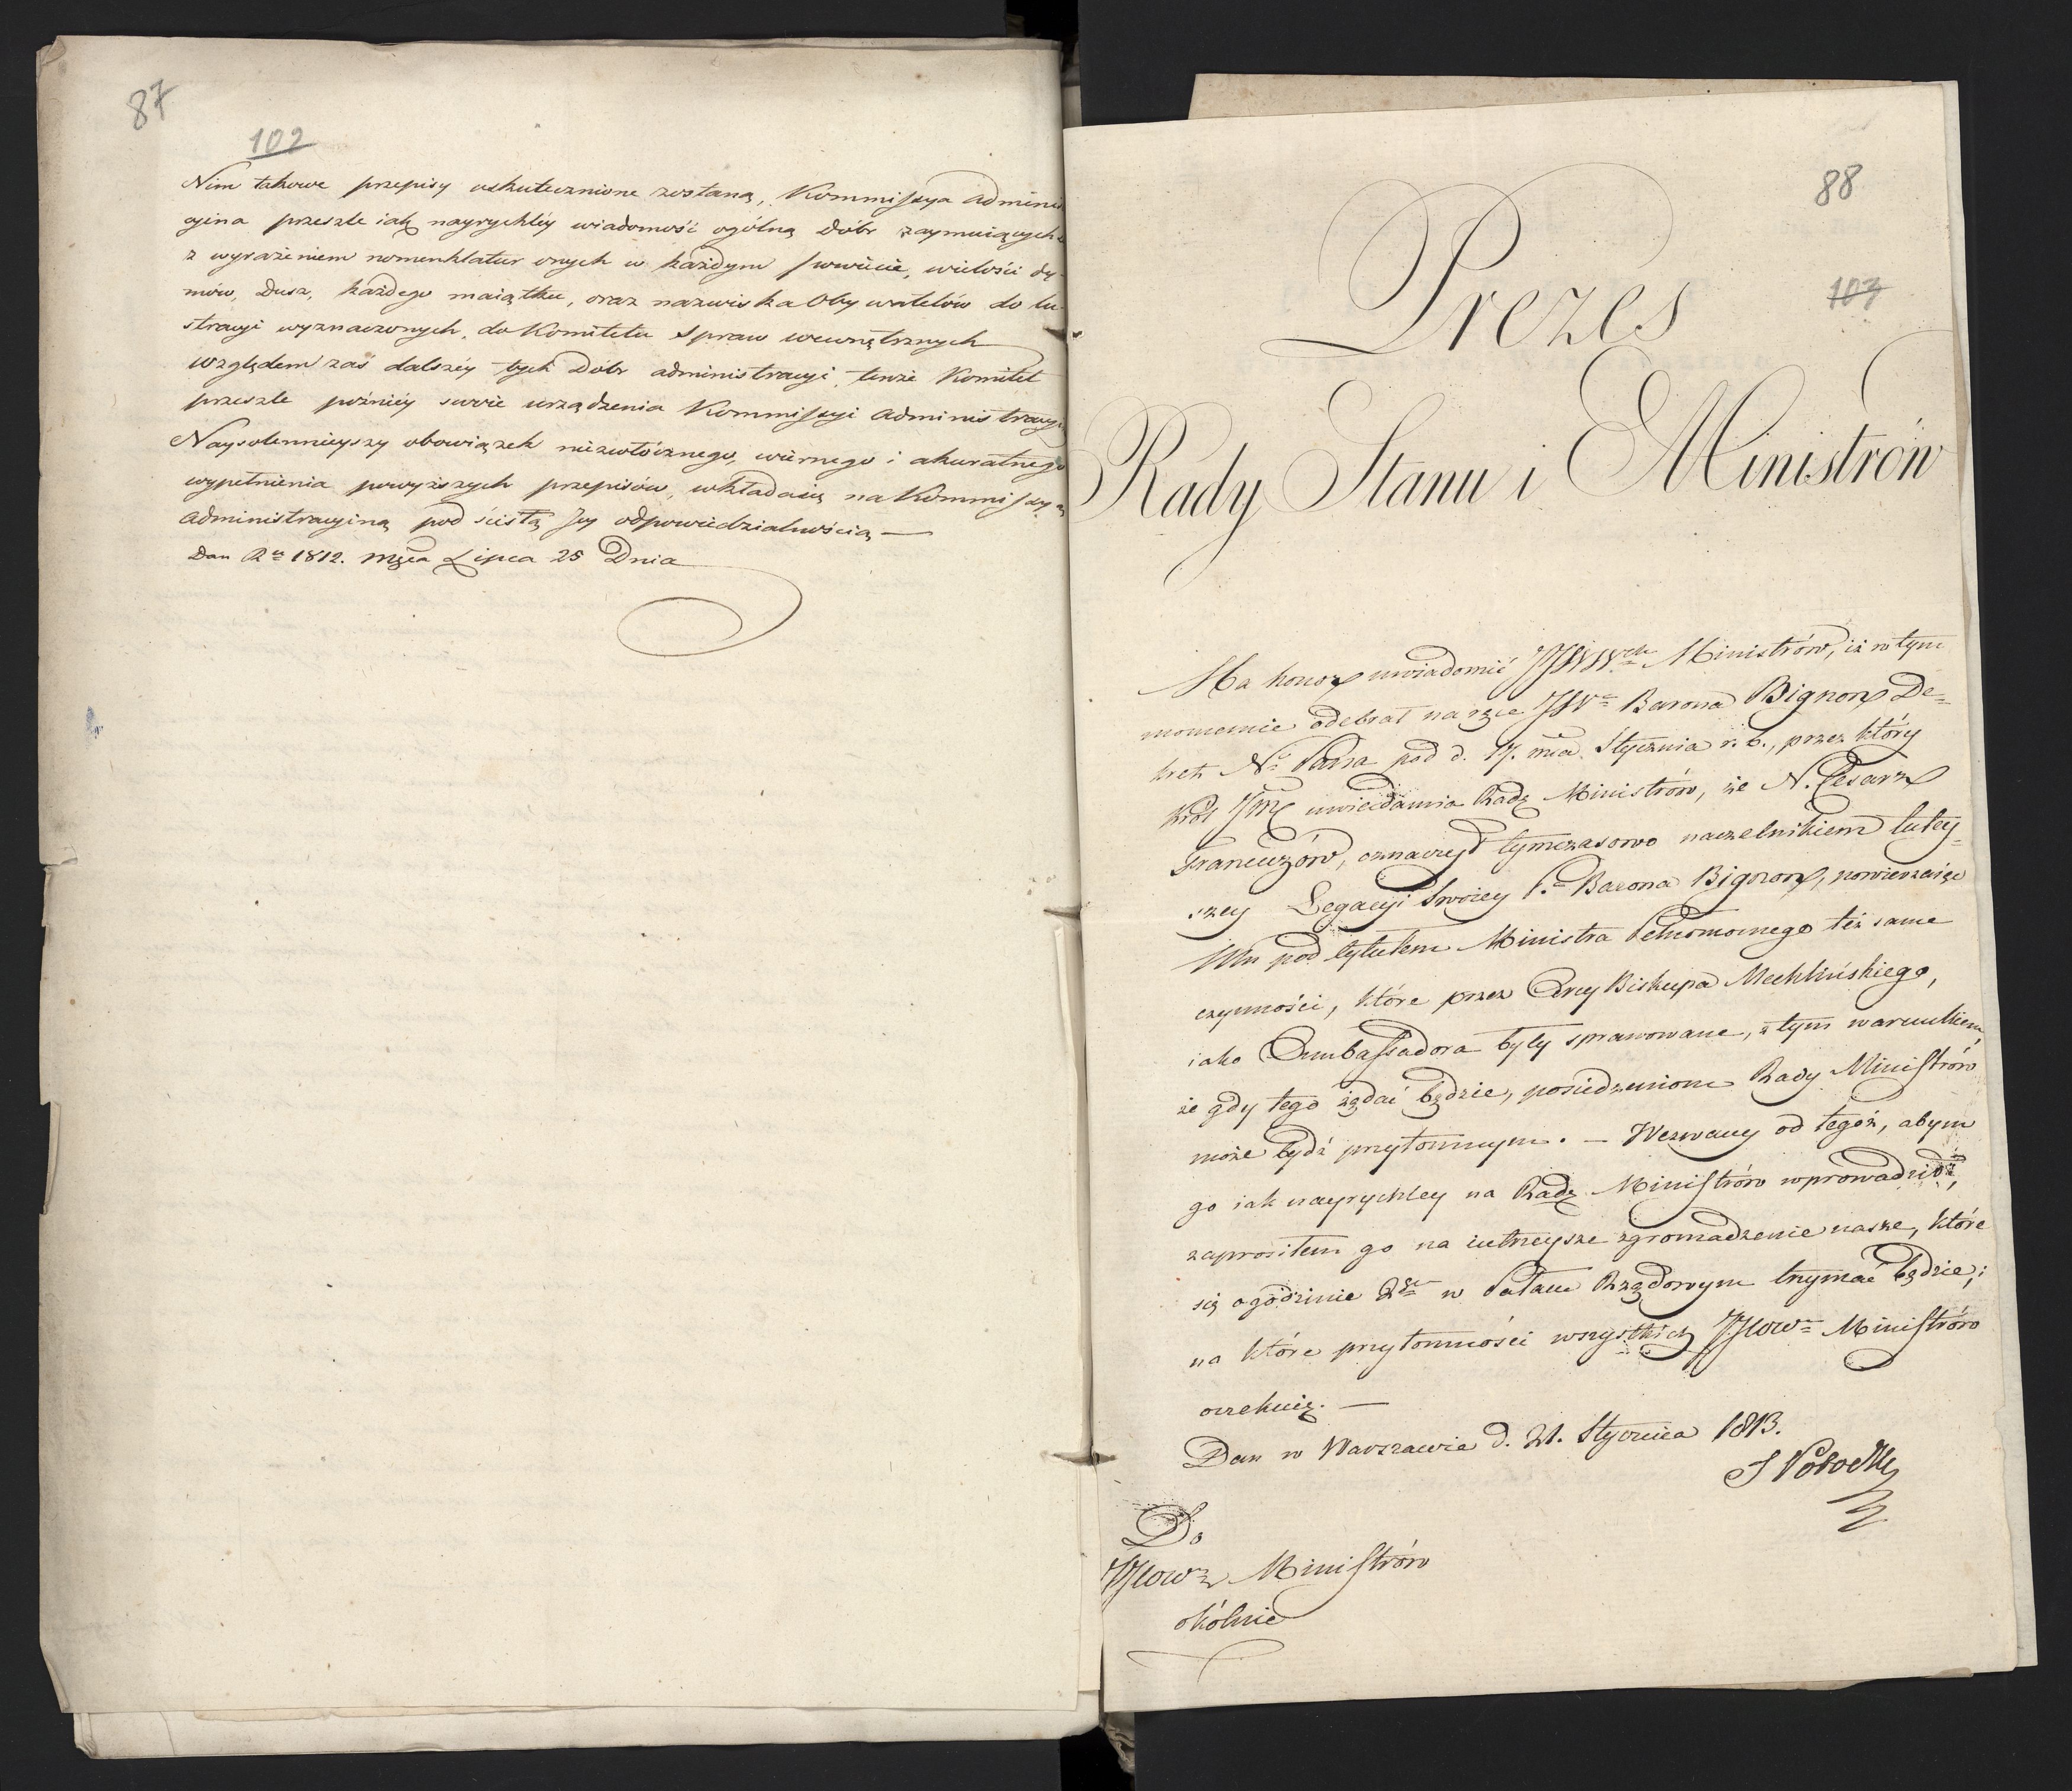 87
102
Nim takowe przepisy uskutecznione zostaną, Kommissya admini
cyina przeszle iak nayrychléy wiadomość ogólną dóbr zaymuiących
z wyrażeniem nomenklatur onych w każdym powiecie, wielości dy-
mów, dusz, każdego maiątku, oraz nazwiska Obywatelów do lu
stracyi wyznaczonych, do Komitetu Spraw wewnętrznych
względem zaś dalszéy tych Dóbr administracyi, tenże Komitet
przeszle późniéy swoie urządzenia Kommissyi administracyi
Naysolennieyszy obowiązek niezwłócznego, wiernego i akuratnego
wypełnienia powyższych przepisów, wkłada się na Kommissyą
administracyiną pod ścisłą Jey odpowiedzialnością —
Dan Ru 1812. Mca Lipca 25 Dnia
88
103
Prezes
Rady Stanu i Ministrów
Ma honor uwiadomić JJWWch Ministrów, iż w tym
momencie odebrał na ręce JWo Barona Bignon De=
kret No Pana pod d. 17. mca Stycznia r. b., przez który
Król Jmć uwiedamia Radę Ministrów, że N. Cesarz
Francuzów, oznaczył tymczasowo naczelnikiem tutey=
szey Legacyi Swoiey Po Barona Bignon, powierzaiąc
Mu pod tytułem Ministra Pełnomocnego też same
czynności, które przez Arcy Biskupa Mechlińskiego,
iako Ambassadora były sprawowane, z tym warunkiem,
że gdy tego żądać będzie, posiedzeniom Rady Ministrów
może bydź przytomnym. — Wezwany od tegóż, abym
go iak nayrychley na Radę Ministrów wprowadził,
zaprosiłem go na iutrzeysze zgromadzenie nasze, które
się o godzinie 2éy w Pałacu Rządowym trzymać będzie;
na które przytomności wszystkich JJWW Ministrów
oczekuię. —
Dan w Warszawie d. 21. Stycznia 1813.
S Potocki
Do
JJWW Ministrów
okólnie